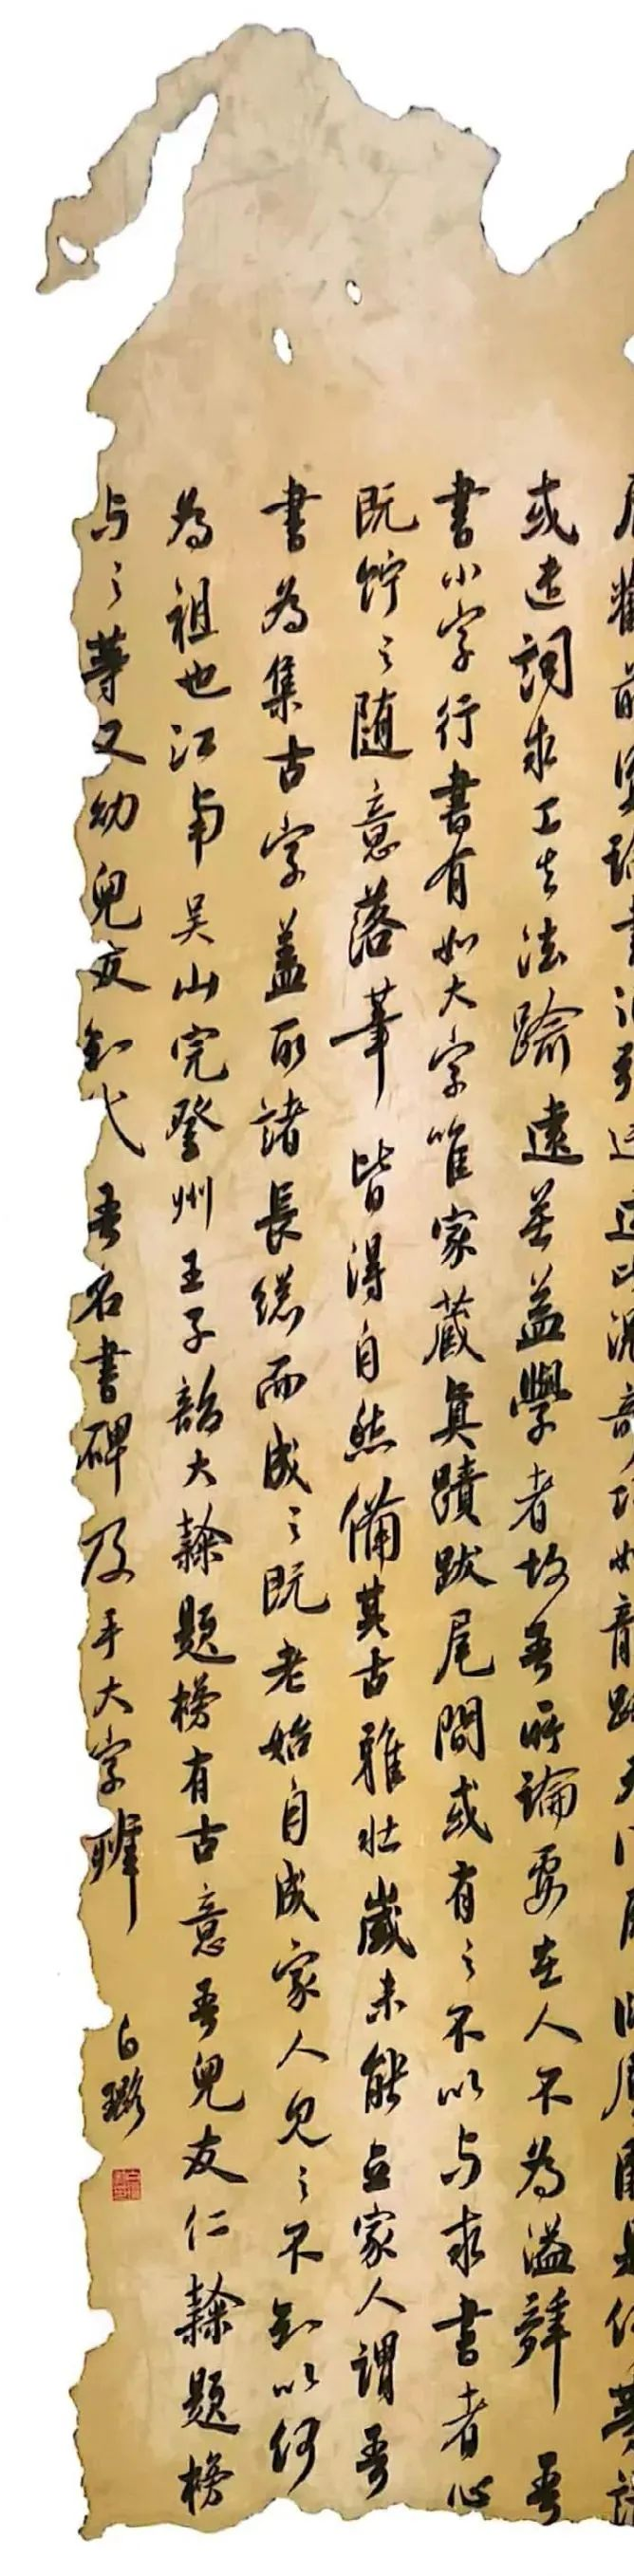 或遣詞求工去法踰遠無益學者故吾所論要在人不為溢辭吾
書小字行書有如大字唯家藏真蹟跋尾間或有之不以与求書者心
既貯之随意落筆皆得自然備其古雅壯歲未能立家人謂吾
書為集古字盖取諸長總而成之既老始自成家人見之不知以何
為祖也江南吴山完登州王子韶大隸題榜有古意吾兒友仁隸題榜
与之等又幼兒友知代吾名書碑及手大字辨
白璐